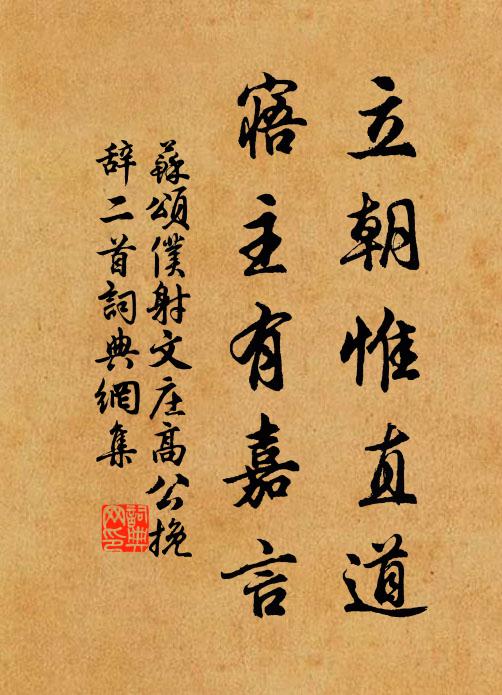 立朝惟直道
寤主有嘉言
蘇頌僕射文庄高公挽
辞二首詞典網集